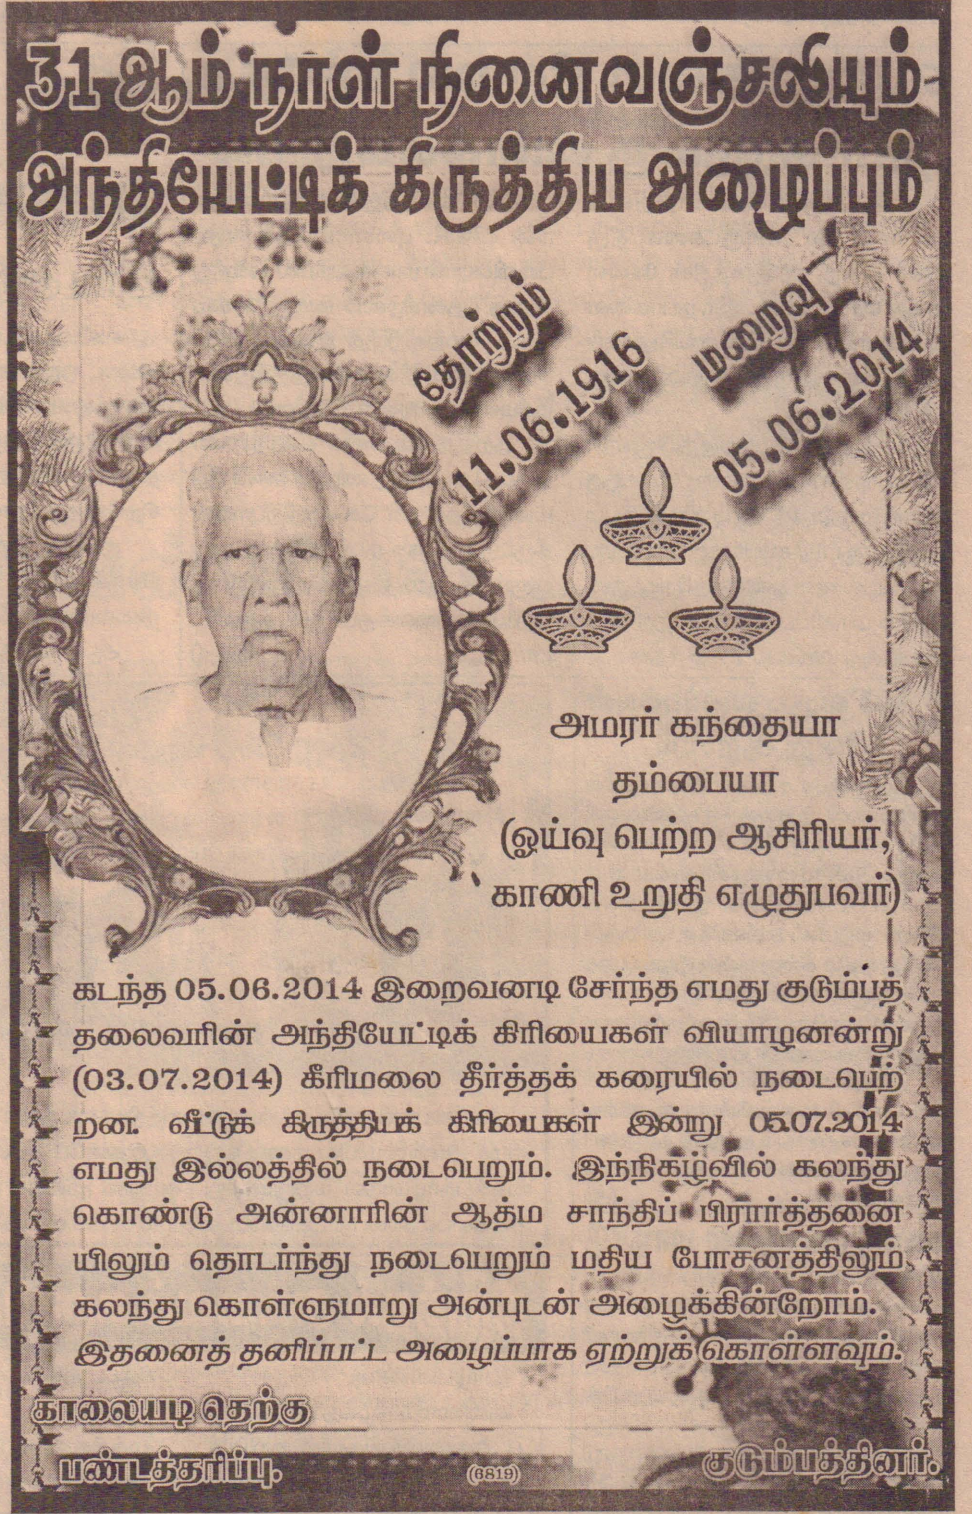 31 ஆம் நாள் நினைவஞ்சலியும்
அந்தியேட்டிக் கிருத்திய அழைப்பும்
தோற்றம்
11.06.1916
மறைவு
05.06.2014
அமரர் கந்தையா
தம்பையா
(ஓய்வு பெற்ற ஆசிரியர்,
காணி உறுதி எழுதுபவர்)
கடந்த 05.06.2014 இறைவனடி சேர்ந்த எமது குடும்பத்
தலைவரின் அந்தியேட்டிக் கிரியைகள் வியாழனன்று
(03.07.2014) கீரிமலை தீர்த்தக் கரையில் நடைபெற்
றன. வீட்டுக் கிருத்தியக் கிரியைகள் இன்று 05.07.2014
எமது இல்லத்தில் நடைபெறும். இந்நிகழ்வில் கலந்து
கொண்டு அன்னாரின் ஆத்ம சாந்திப் பிரார்த்தனை
யிலும் தொடர்ந்து நடைபெறும் மதிய போசனத்திலும்
கலந்து கொள்ளுமாறு அன்புடன் அழைக்கின்றோம்.
இதனைத் தனிப்பட்ட அழைப்பாக ஏற்றுக் கொள்ளவும்.
காலையடி தெற்கு
பண்டத்தரிப்பு.
(6819)
குடும்பத்தினர்.